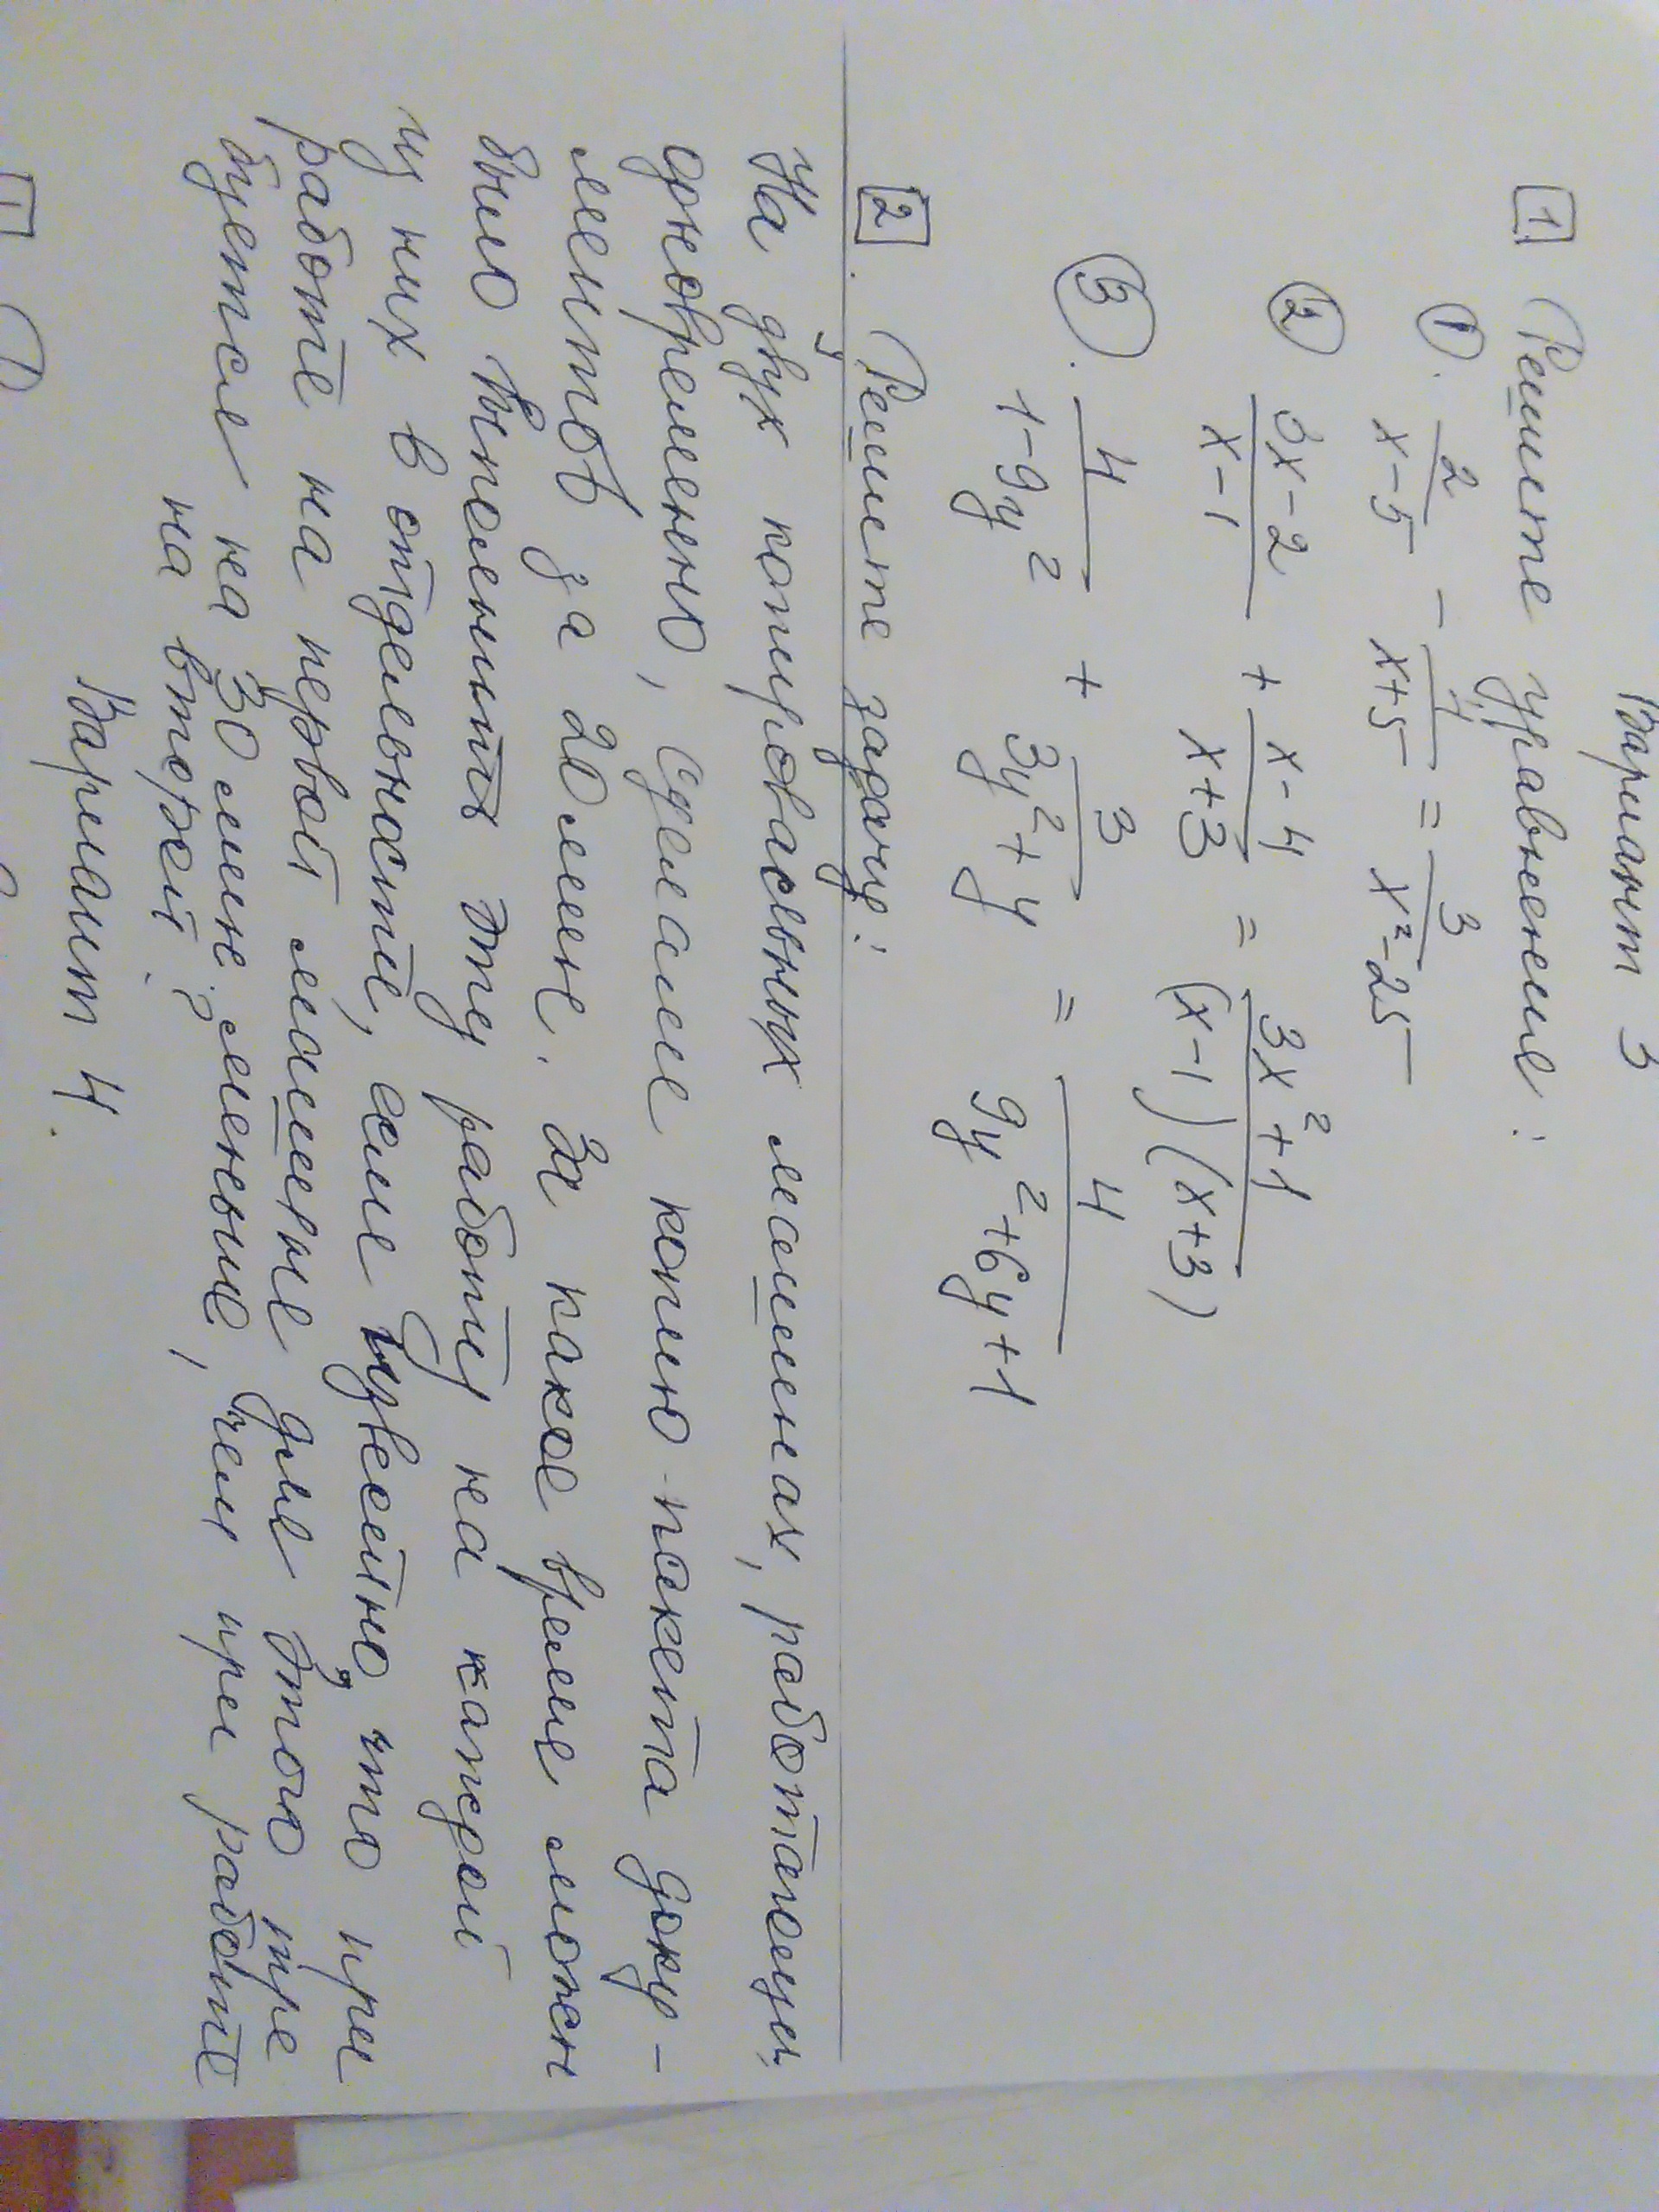 Вариант 3
1. Решите уравнение:
① 2/(x-5) - 1/(x+5) = 3/(x²-25)
② (3x-2)/(x-1) + (x-4)/(x+3) = (3x²+1)/((x-1)(x+3))
③ 4/(1-9y²) + 3/(3y²+y) = 4/(9y²+6y+1)
2. Решите задачу:
На двух копировальных машинах, работающих
одновременно, сделали копию пакета доку-
ментов за 20 мин. За какое время можн
было выполнить эту работу на каждой
из них в отдельности, если известно, что при
работе на первой машине для этого тре
буется на 30 мин. меньше, чем при работе
на второй?
Вариант 4.
1